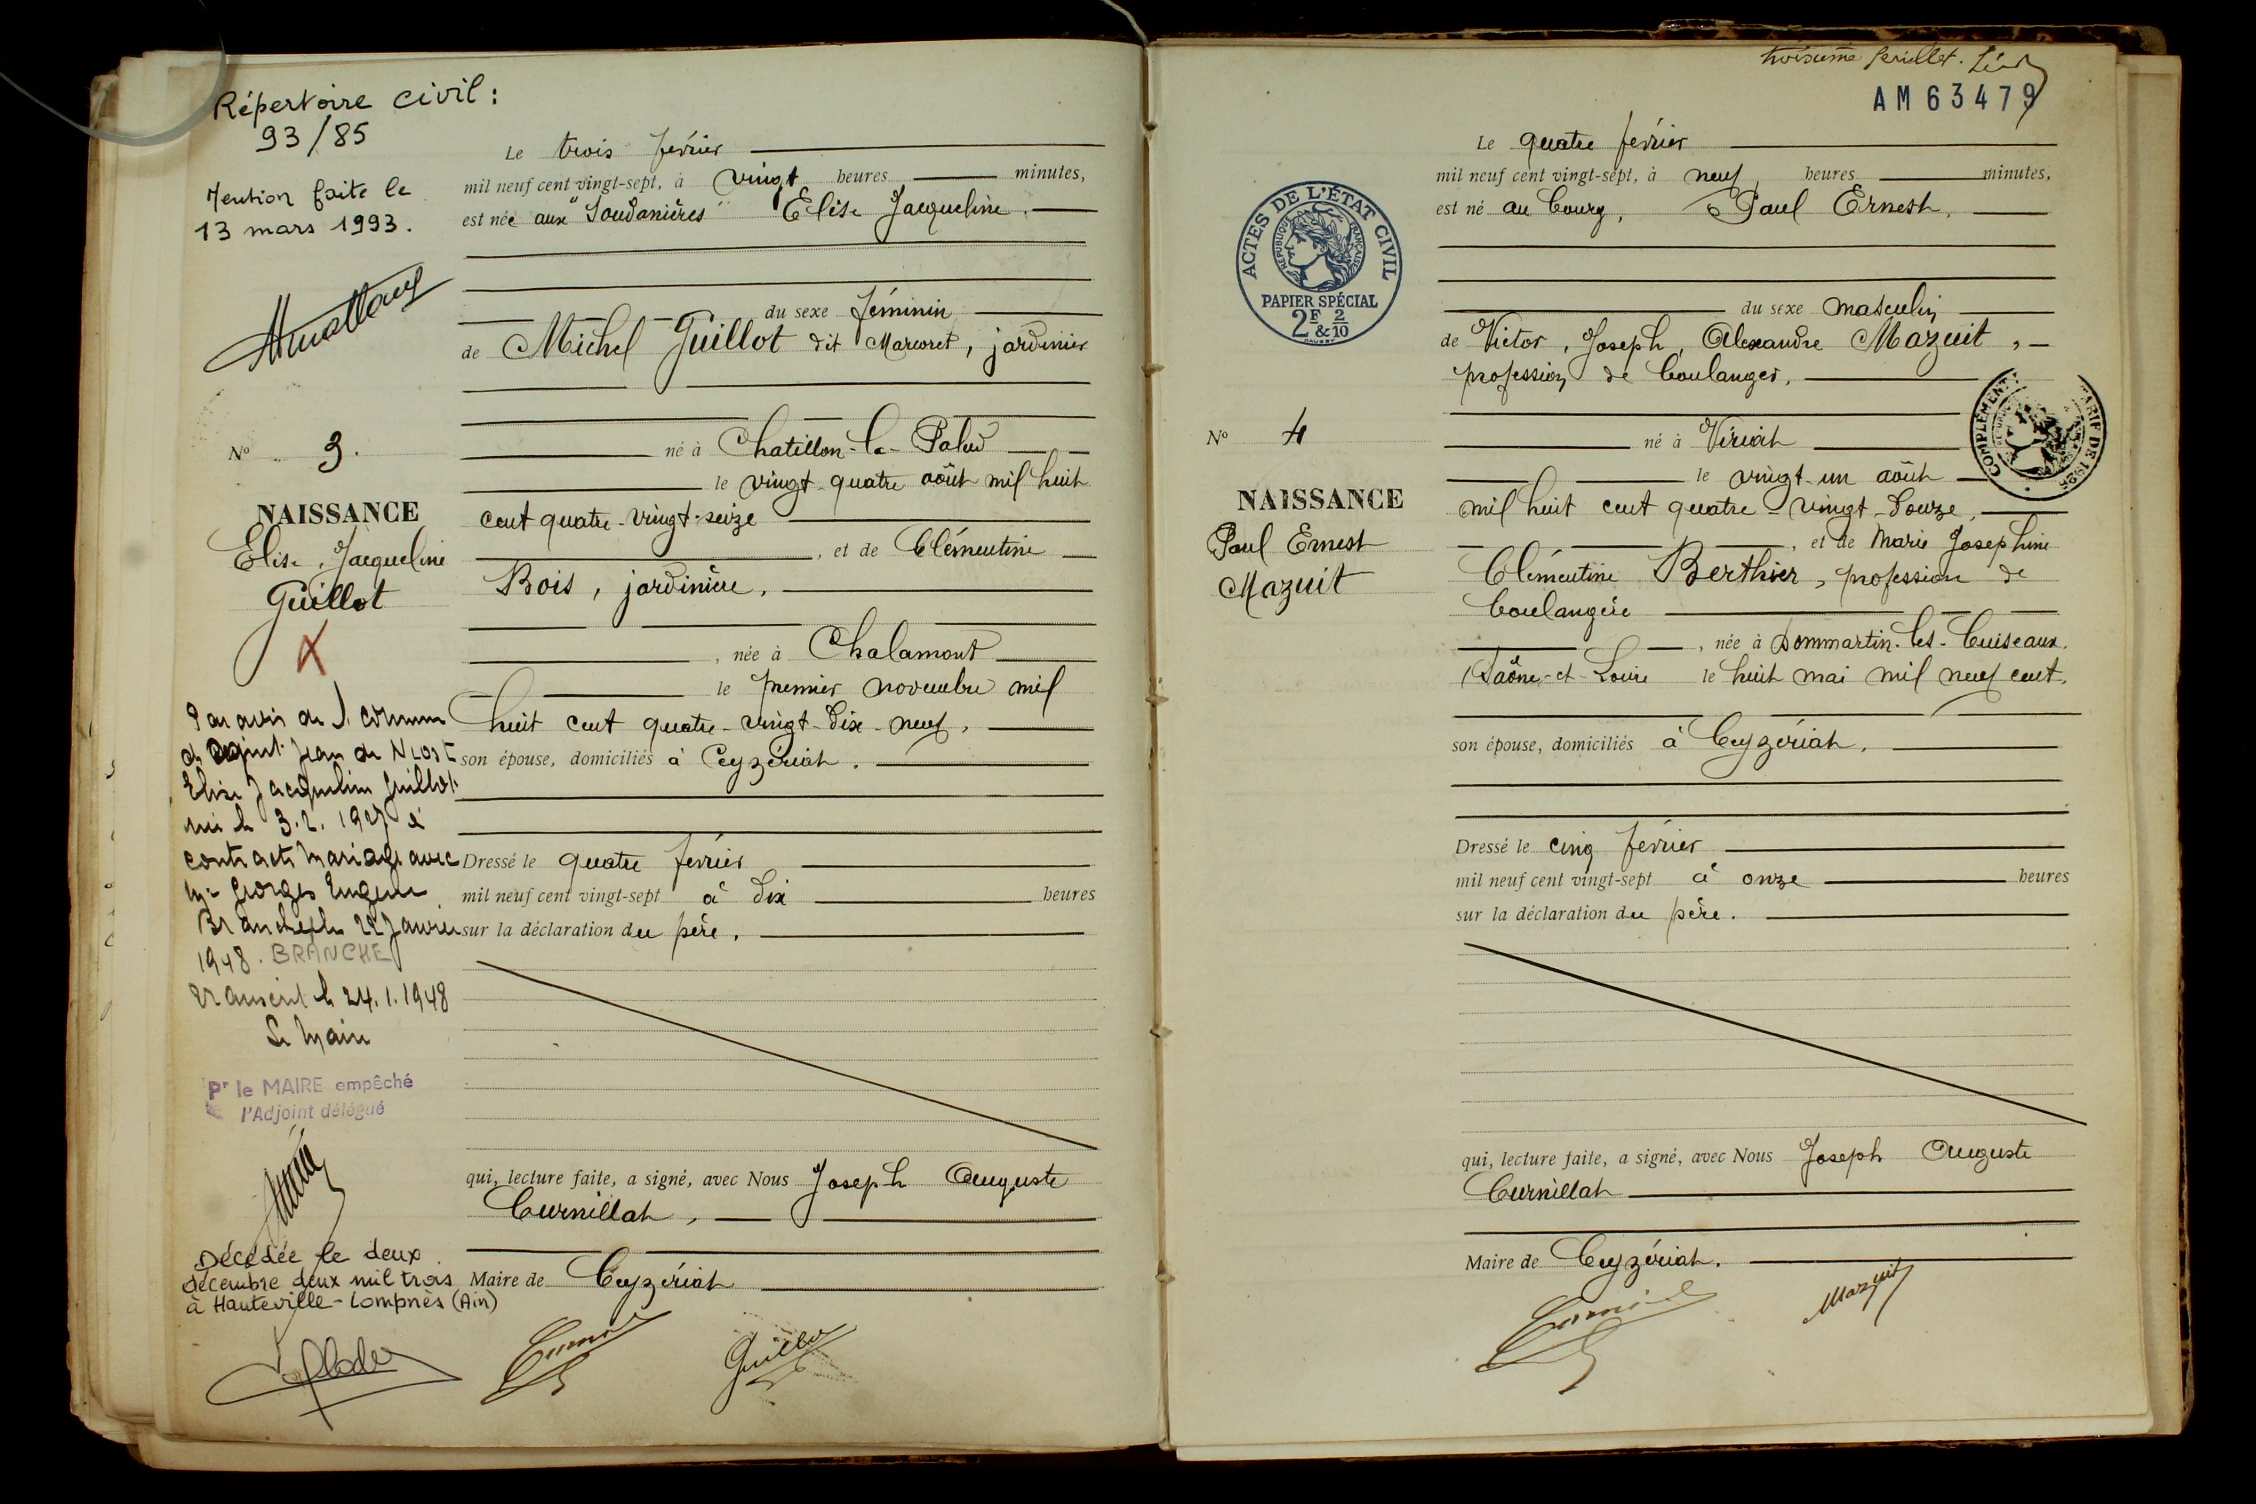 Répertoire civil :
93/85
Mention faite le
13 mars 1993.
N° 3.
NAISSANCE
Elise, Jacqueline
Guillot
X
Elise Jacqueline Guillot
née le 3.2.1927 a
contracté mariage avec
Mr Georges Eugène
Branche le 22 Janvier
1948. BRANCHE
transcrit le 24.1.1948
Le Maire
Pr le MAIRE empêché
l'Adjoint délégué
Décédée le deux
décembre deux mil trois
à Hauteville-Lompnès (Ain)
Le trois février
mil neuf cent vingt-sept, à vingt heures minutes,
est née aux "Soudanières" Elise Jacqueline.
du sexe féminin
de Michel Guillot dit Marcoret, jardinier
né à Chatillon-la-Palud
le vingt-quatre août mil huit
cent quatre-vingt-seize
, et de Clémentine
Bois, jardinière.
, née à Chalamont
le premier novembre mil
huit cent quatre-vingt-dix-neuf,
son épouse, domiciliés à Ceyzériat.
Dressé le quatre février
mil neuf cent vingt-sept à dix heures
sur la déclaration du père.
qui, lecture faite, a signé, avec Nous Joseph Auguste
Curnillat,
Maire de Ceyzériat
Guillot
troisième feuillet.
AM 63479
ACTES DE L'ÉTAT CIVIL
RÉPUBLIQUE FRANÇAISE
PAPIER SPÉCIAL
2F & 2/10
N° 4
NAISSANCE
Paul Ernest
Mazuit
Le quatre février
mil neuf cent vingt-sept, à neuf heures minutes,
est né au bourg, Paul Ernest,
du sexe masculin
de Victor, Joseph, Alexandre Mazuit,
profession de boulanger,
COMPLÉMENT TARIF DE 1925
né à Viriat
le vingt-un août
mil huit cent quatre-vingt-douze,
, et de Marie Josephine
Clémentine Berthier, profession de
boulangère
, née à Dommartin-les-Cuiseaux.
(Saône-et-Loire le huit mai mil neuf cent,
son épouse, domiciliés à Ceyzériat.
Dressé le cinq février
mil neuf cent vingt-sept à onze heures
sur la déclaration du père.
qui, lecture faite, a signé, avec Nous Joseph Auguste
Curnillat
Maire de Ceyzériat.
Mazuit